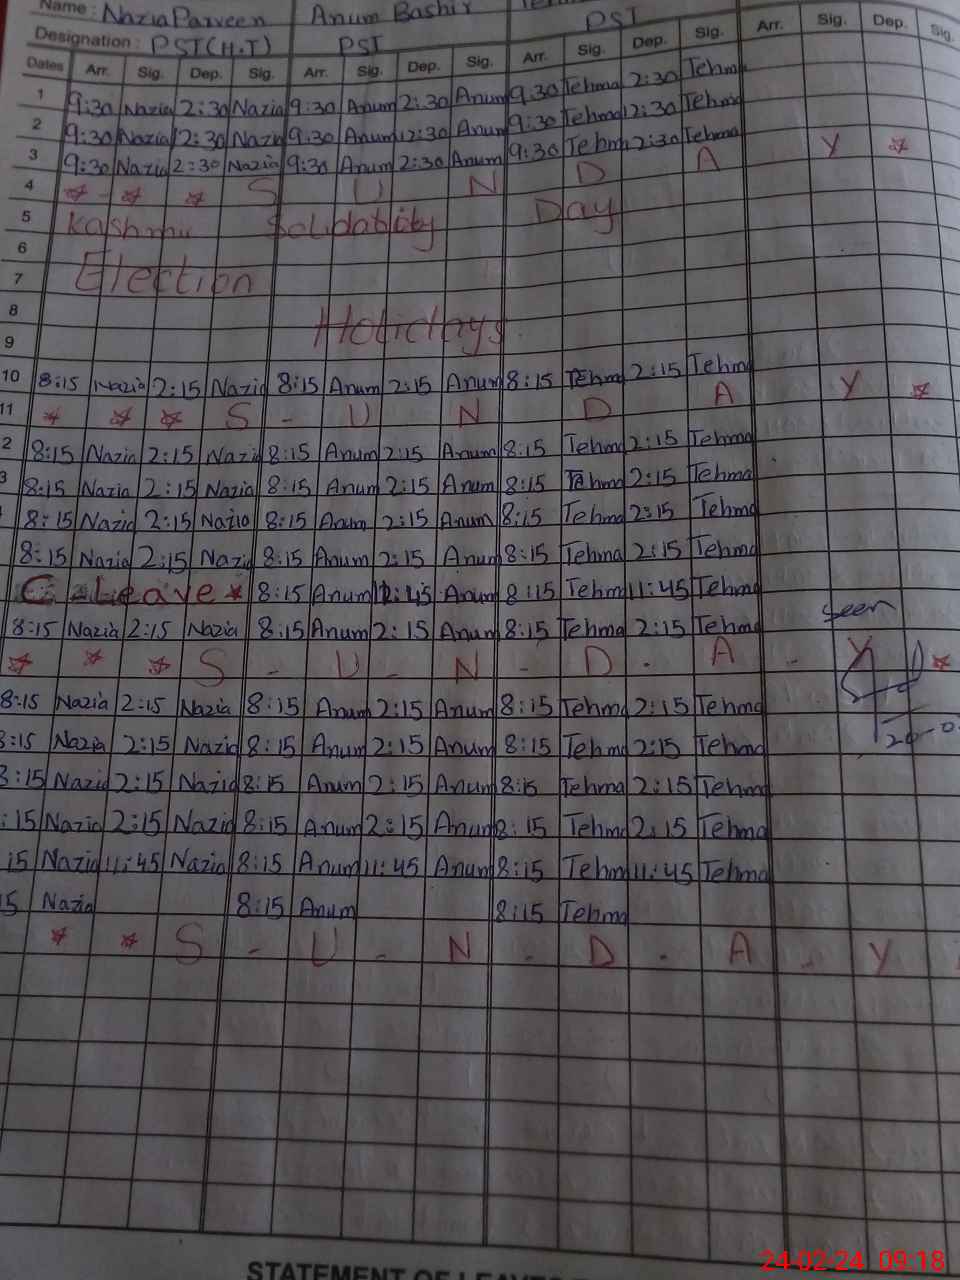 Name : Nazia Parveen Anum Bashir
Designation : PST (H.T) PST PST
Dates Arr. Sig. Dep. Sig. Arr. Sig. Dep. Sig. Arr. Sig. Dep. Sig. Arr. Sig. Dep. Sig.
1 9:30 Nazia 2:30 Nazia 9:30 Anum 2:30 Anum 9:30 Tehma 2:30 Tehma
2 9:30 Nazia 2:30 Nazia 9:30 Anum 2:30 Anum 9:30 Tehma 2:30 Tehma
3 9:30 Nazia 2:30 Nazia 9:30 Anum 2:30 Anum 9:30 Tehma 2:30 Tehma
4 S U N D A Y
5 Kashmir Solidability Day
6
7 Election
8 Holidays
9
10 8:15 Nazia 2:15 Nazia 8:15 Anum 2:15 Anum 8:15 Tehma 2:15 Tehma
11 S - U N D A Y
2 8:15 Nazia 2:15 Nazia 8:15 Anum 2:15 Anum 8:15 Tehma 2:15 Tehma
3 8:15 Nazia 2:15 Nazia 8:15 Anum 2:15 Anum 8:15 Tehma 2:15 Tehma
8:15 Nazia 2:15 Nazia 8:15 Anum 2:15 Anum 8:15 Tehma 2:15 Tehma
8:15 Nazia 2:15 Nazia 8:15 Anum 2:15 Anum 8:15 Tehma 2:15 Tehma
C Leave 8:15 Anum Anum 8:15 Tehma 11:45 Tehma
seen
8:15 Nazia 2:15 Nazia 8:15 Anum 2:15 Anum 8:15 Tehma 2:15 Tehma
S - U - N - D . A - Y
8:15 Nazia 2:15 Nazia 8:15 Anum 2:15 Anum 8:15 Tehma 2:15 Tehma
8:15 Nazia 2:15 Nazia 8:15 Anum 2:15 Anum 8:15 Tehma 2:15 Tehma
20-0
8:15 Nazia 2:15 Nazia 8:15 Anum 2:15 Anum 8:15 Tehma 2:15 Tehma
:15 Nazia 2:15 Nazia 8:15 Anum 2:15 Anum 8:15 Tehma 2:15 Tehma
15 Nazia 11:45 Nazia 8:15 Anum 11:45 Anum 8:15 Tehma 11:45 Tehma
5 Nazia 8:15 Anum 8:15 Tehma
S - U - N - D . A - Y
STATEMENT OF LEAVES
24-02-24 09:18